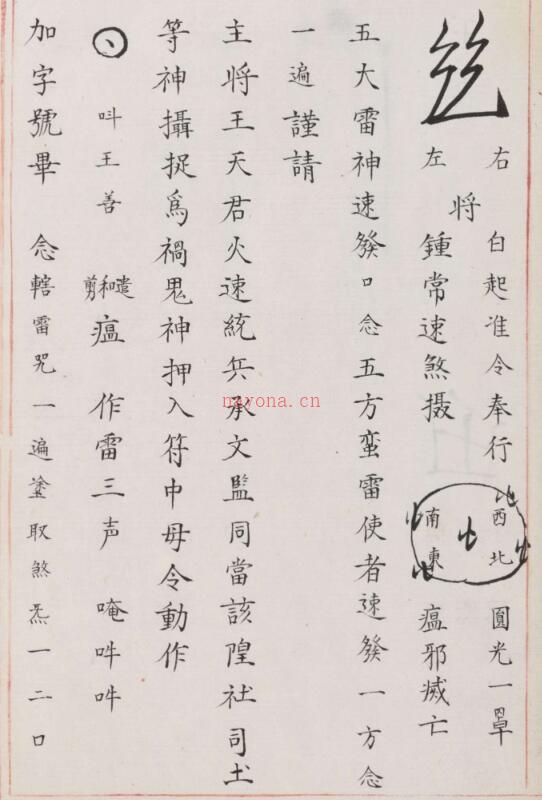 右 白起准令奉行 西北 圓光一罩
將
左 鍾常速煞摄 南東 瘟邪滅亡
五大雷神速發口念五方蛮雷使者速發一方念
一遍謹請
主將王天君火速統兵承文監同當該隍社司土
等神攝捉為禍鬼神押入符中毋令動作
呌王善 遣和剪瘟 作雷三声 唵吽吽
加字號畢 念轄雷咒一遍塗取煞炁一二口
nayona.cn